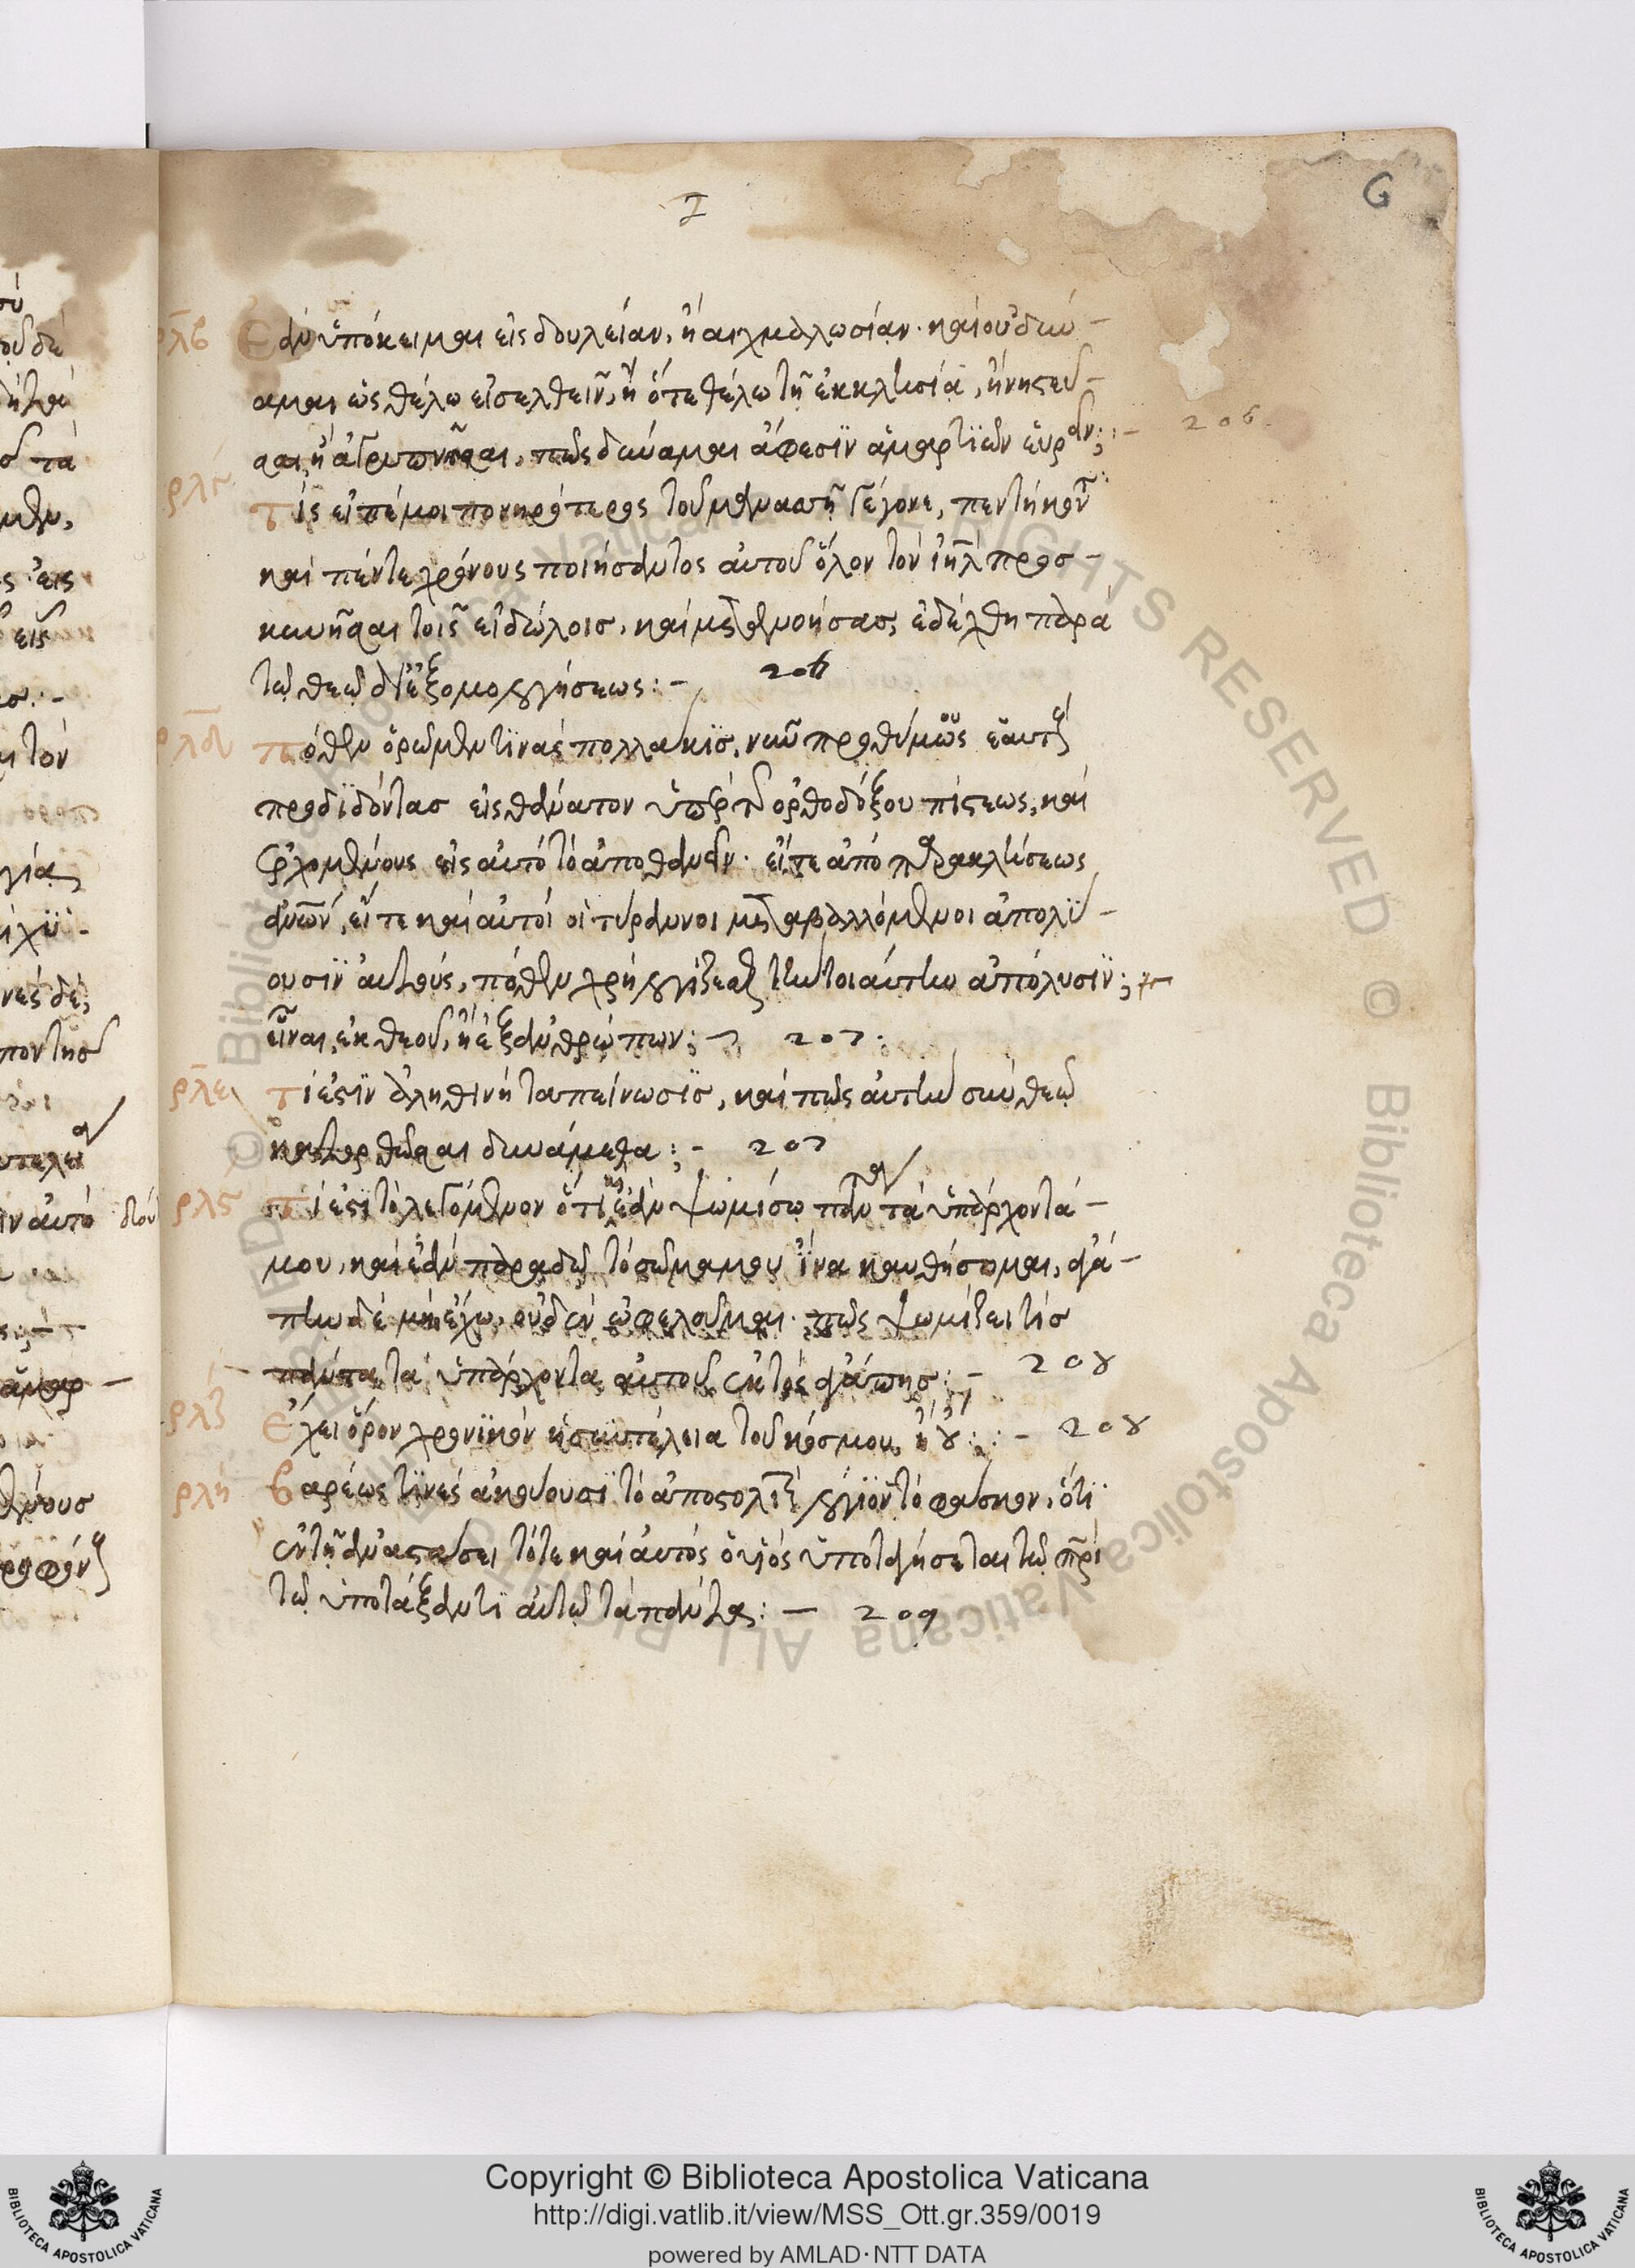 I
G
ρλβ Ἐὰν ὑπόκειμαι εἰς δουλείαν, ἢ αἰχμαλωσίαν· καὶ οὐ δύν-
αμαι ὡς θέλω εἰσελθεῖν, ἢ ὅτε θέλω τῇ ἐκκλησίᾳ, ἢ νηστεῦ-
σαι, ἢ ἀγρυπνῆσαι, πῶς δύναμαι ἄφεσϊν ἁμαρτϊῶν εὑρεῖν; :- 206.
ρλγ Τίς εἰπέ μοι πονηρότερος τοῦ μανασσῆ γέγονε, πεντήκοντα
καὶ πέντε χρόνους ποιήσαντος αὐτοῦ ὅλον τὸν ἰηλ̅ προσ-
κυνῆσαι τοῖς εἰδώλοισ, καὶ μετανοήσας, ἐδέχθη παρὰ
τῷ θεῷ δι' ἐξομολογήσεως: - 206
ρλδ πόθεν ὁρῶμεν τϊνὰς πολλάκϊς, νῦν προθύμως ἑαυτοὺς
προδϊδόντασ εἰς θάνατον ὑπὲρ τῆς ὀρθοδόξου πίστεως, καὶ
ἐρχομένους εἰς αὐτὸ τὸ ἀποθανεῖν· εἴτε ἀπὸ παρακλήσεως
ἀνων̅, εἴτε καὶ αὐτοὶ οἱ τύραννοι μεταβαλλόμενοι ἀπολύ-
ουσϊν αὐτούς, πόθεν χρὴ λογίζεσθαι τὴν τοιαύτην ἀπόλυσϊν;
εἶναι, ἐκ θεοῦ, ἢ ἐξ ἀνθρώπων; - 207.
ρλε τί ἐστϊν ἀληθινὴ ταπείνωσϊς, καὶ πῶς αὐτὴν σὺν θεῷ
κατορθῶσαι δυνάμεθα; - 207
ρλς τί ἐστϊ τὸ λεγόμενον ὅτι κἂν ἐὰν ψωμίσω πάντα τὰ ὑπάρχοντά-
μου, καὶ ἐὰν παραδῶ τὸ σῶμα μου ἵνα καυθήσομαι, ἀγά-
πην δὲ μὴ ἔχω, οὐδὲν ὠφελοῦμαι· πῶς ψωμίζει τίσ
πάντα τὰ ὑπάρχοντα αὐτοῦ ἐκτὸς ἀγάπησ; - 208
ρλζ Ἔχει ὅρον χρονϊκὸν ἡ συντέλεια τοῦ κόσμου, ἢ οὔ; :- 208
ρλη βαρέως τϊνὲς ἀκούουσϊ τὸ ἀποστολικὸν λόγιον τὸ φάσκον, ὅτϊ
ἐν τῇ ἀναστάσει τότε καὶ αὐτὸς ὁ υἱὸς ὑποταγήσεται τῷ πρι̅
τῷ ὑποτάξαντϊ αὐτῷ τὰ πάντα: - 209
Copyright © Biblioteca Apostolica Vaticana
http://digi.vatlib.it/view/MSS_Ott.gr.359/0019
powered by AMLAD·NTT DATA
BIBLIOTECA APOSTOLICA VATICANA
BIBLIOTECA APOSTOLICA VATICANA